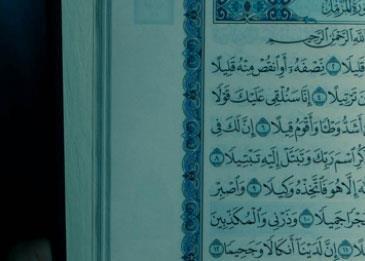 سُورَةُ الْمُزَّمِّلِ
اللَّهِ الرَّحْمَٰنِ الرَّحِيمِ
قَلِيلًا ٢ نِصْفَهُ أَوِ انقُصْ مِنْهُ قَلِيلًا
تَرْتِيلًا ٤ إِنَّا سَنُلْقِي عَلَيْكَ قَوْلًا
أَشَدُّ وَطْئًا وَأَقْوَمُ قِيلًا ٦ إِنَّ لَكَ فِي
اسْمَ رَبِّكَ وَتَبَتَّلْ إِلَيْهِ تَبْتِيلًا ٨
إِلَّا هُوَ فَاتَّخِذْهُ وَكِيلًا ٩ وَاصْبِرْ
جَمِيلًا ١٠ وَذَرْنِي وَالْمُكَذِّبِينَ
١١ إِنَّ لَدَيْنَا أَنكَالًا وَجَحِيمًا ١٢